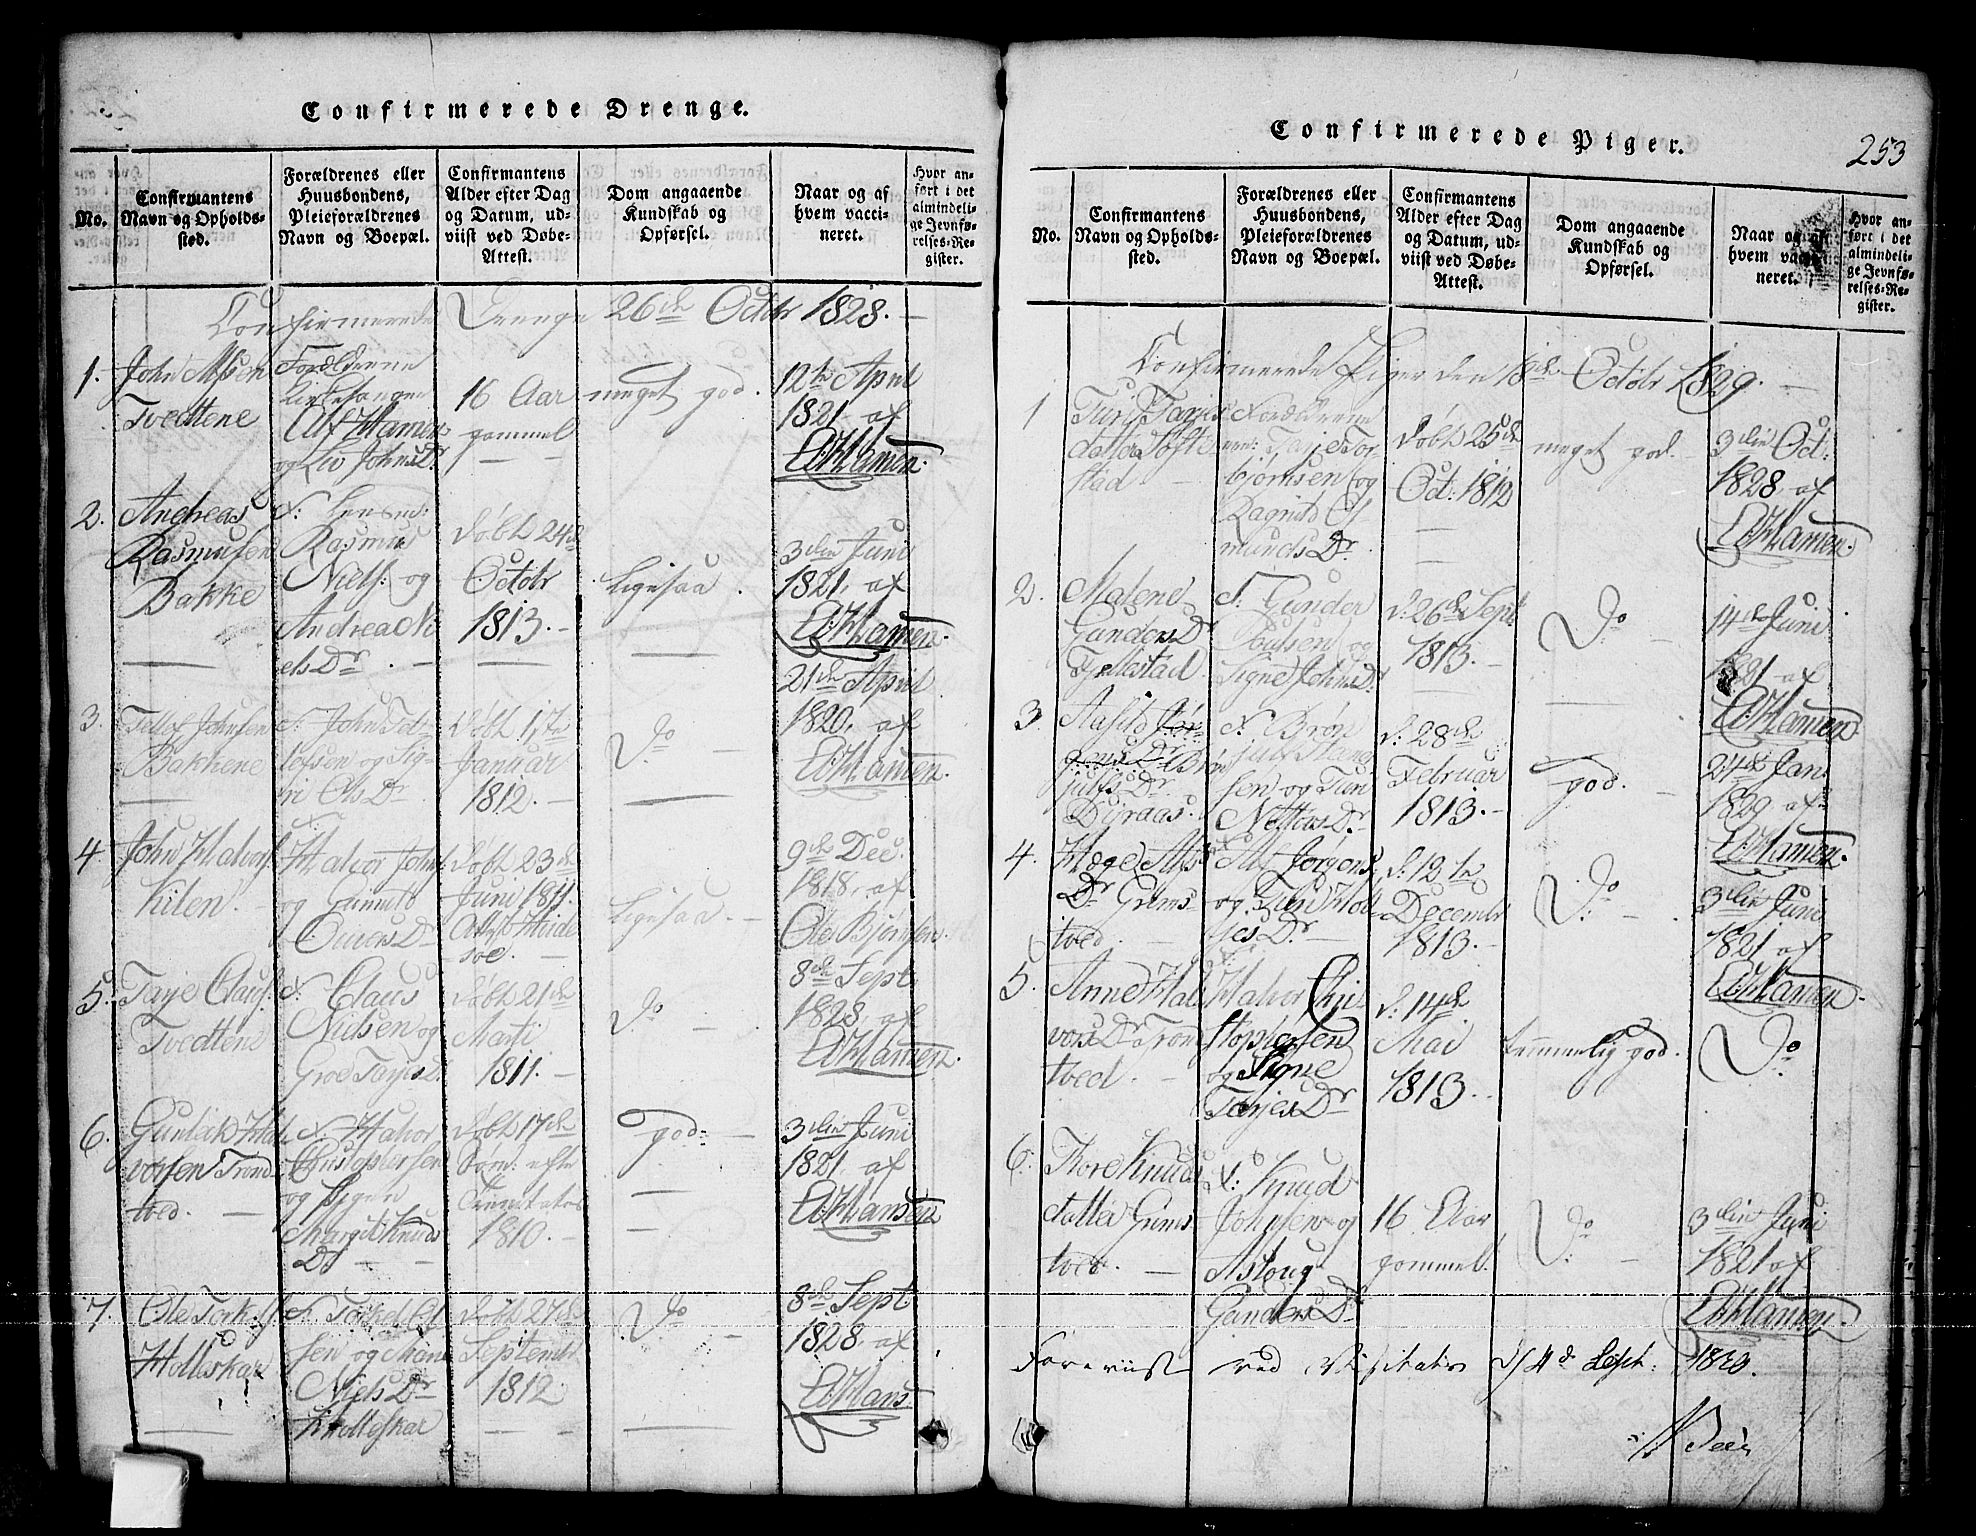 Confirmerede Drenge.
No.
Confirmantens
Navn og Opholds-
sted.
Forældrenes eller
Huusbondens,
Pleieforældrenes
Navn og Boepæl.
Confirmantens
Alder efter Dag
og Datum, ud-
viist ved Døbe-
Attest.
Dom angaaende
Kundskab og
Opførsel.
Naar og af
hvem vacci-
neret.
Hvor an-
ført i det
almindeli-
ge Jevnfø-
relses-Re-
gister.
Confirmerede Drenge 26de Octbr 1828.
1.
John Alfsen
Tvedtene
Forældrene
Kirkesanger
Alf Hansen
og Liv JohnsDr
16 Aar
gammel
meget god.
12te April
1821 af
EHansen.
2.
Andreas
Rasmusen
Bakke
F:
Rasmus
Niels: og
Andrea Ni
elsDr.
døbt 24de
Octobr
1813.
Ligesaa.
3die Juni
1821. af
EHansen
3.
Tellef Johnsen
Bakkene
F. John Tel-
lofsen og Sig-
ri OlsDr
Døbt 1ste
Januar
1812.
Do
21de April
1820. af
EHansen.
4.
John Halvors.
Kilen.
F. Halvor Johns.
og Gunnild
OuversDr
døbt 23de
Juni 1811.
Ligesaa.
9de Dec.
1818. af
Ole Bjørnsen.
5.
Tarje Claus.
Tvedtene
F. Claus
Nielsen og
Groe TarjesD.
døbt 21de
Marti
1811.
Do
8de Sept
1828. af
EHansen.
6.
Gunleik Hal-
vorsen Trond
tved.
F. Halvor
Christophersen
og Pigen
Margit Knuds
D.
Døbt 17de
Søn: efter
Trinitatis
1810.
god.
3die Juni
1821. af
EHansen
7.
Ole Torkels.
Holleskar
F. Torkel Ol-
sen og Mari
NielsDr
Holleskar
Døbt 27de
Septembr
1812.
Do
8de Sept
1828. af
EHans.
Confirmerede Piger.
253
No.
Confirmantens
Navn og Opholds-
sted.
Forældrenes eller
Huusbondens,
Pleieforældrenes
Navn og Boepæl.
Confirmantens
Alder efter Dag
og Datum, ud-
viist ved Døbe-
Attest.
Dom angaaende
Kundskab og
Opførsel.
Naar og af
hvem vacci-
neret.
Hvor an-
ført i det
almindeli-
ge Jevnfø-
relses-Re-
gister.
Confirmerede Piger den 18de Octobr 1829.
1
Turi Tarjes
datter Tofte
stad
Forældrene
ere: Tarje Tor
bjørnsen og
Ragnild As-
mundsDr
døbt 25de
Oct: 1812
meget god.
3die Oct:
1828. af
EHansen.
2.
Malene
GundersDr
Fjellestad
F. Gunder
Poulsen og
Signe JohnsD.
d. 26de Sept
1813.
Do
14de Juni
1821 af
EHansen
3
Aasild Jør-
gensDr Brøn
julfsDr
Dyraas.
F. Brøn
julf Hans
sen og Turi
NottosDr.
d. 28de
Februar
1813.
god.
24de Jan.
1829 af
EHansen.
4.
Hæge Alfs
Dr Grims-
tved.
F. Alf Jørgens.
og Turi Holt-
jesDr.
d. 12te
Decembr
1813.
Do
3die Juni
1821 af
EHansen.
5.
Anne Hal
vorsDr Tron
tved.
Halvor Chri-
stophersen
og Signe
TarjesDr
d. 14de
Mai
1813.
temmelig god.
Do
6.
Thore Knuds
datter Grims-
tved.
F. Knud
Johnsen og
Asloug
GundersDr
16 Aar
gammel.
Do
3die Juni
1821 af
EHansen
Foreviist ved Visitatio d/4de Sept: 1830.